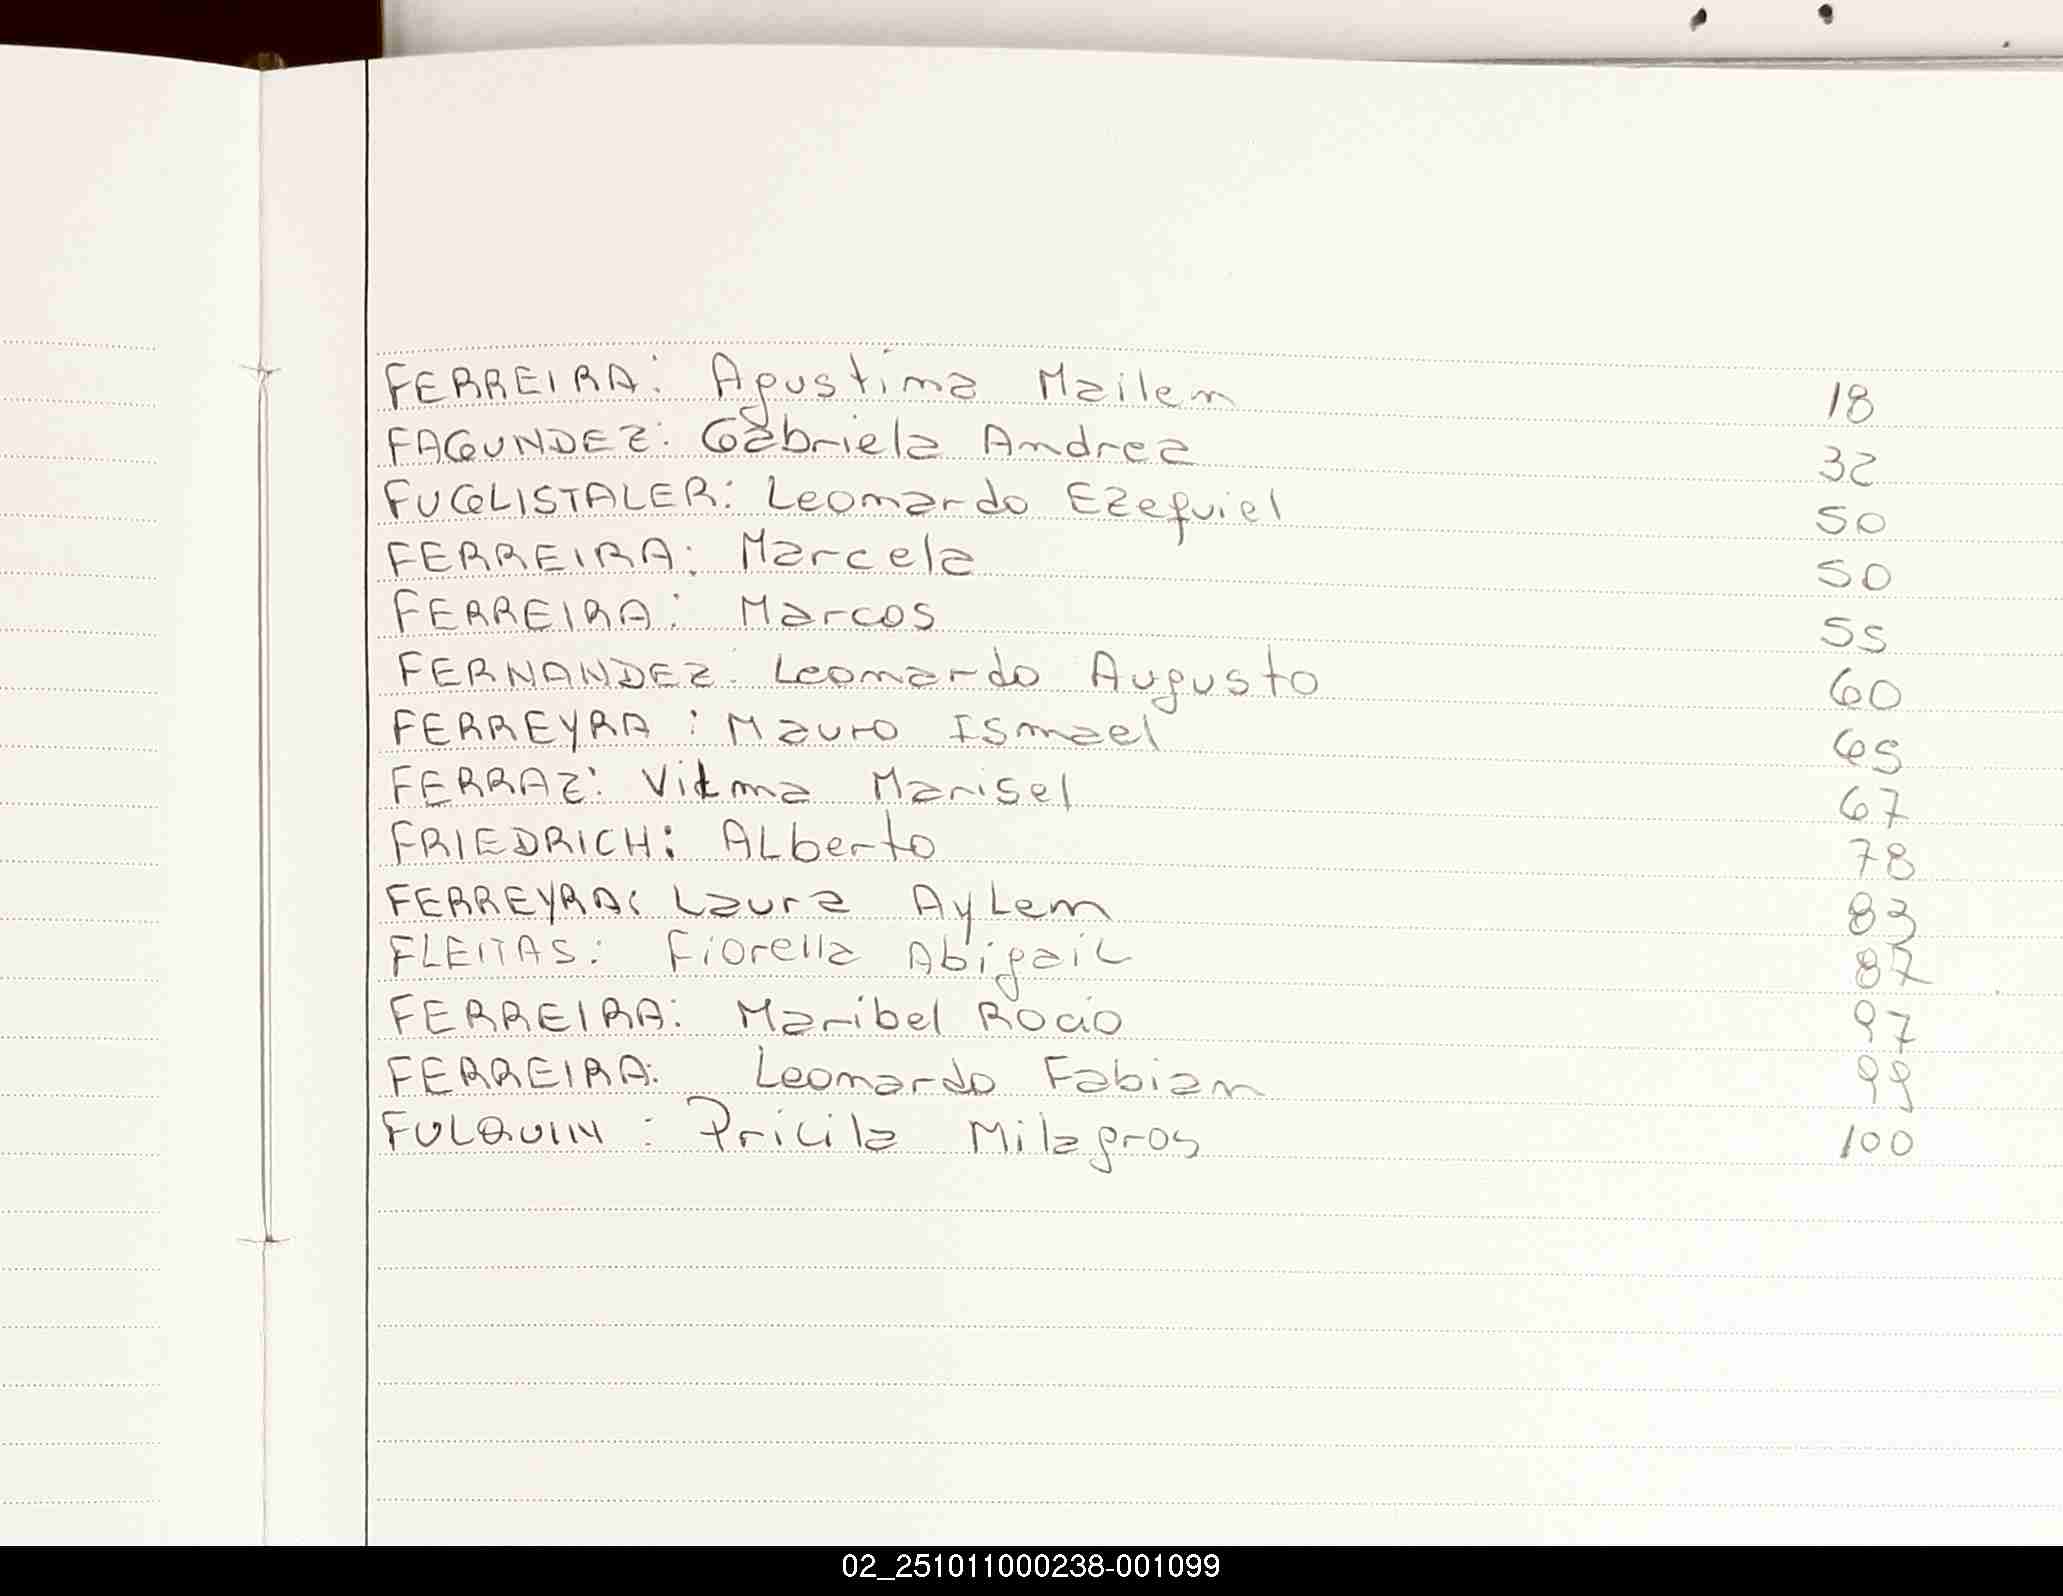 FERREIRA: Agustina Mailen 18
FAGUNDEZ: Gabriela Andrea 32
FUGLISTALER: Leonardo Ezequiel 50
FERREIRA: Marcela 50
FERREIRA: Marcos 55
FERNANDEZ: Leonardo Augusto 60
FERREYRA: Mauro Ismael 65
FERRAZ: Vilma Marisel 67
FRIEDRICH: Alberto 78
FERREYRA: Laura Aylen 83
FLEITAS: Fiorella Abigail 87
FERREIRA: Maribel Rocio 97
FERREIRA: Leonardo Fabian 99
FULQUIN: Pricila Milagros 100
02_251011000238-001099